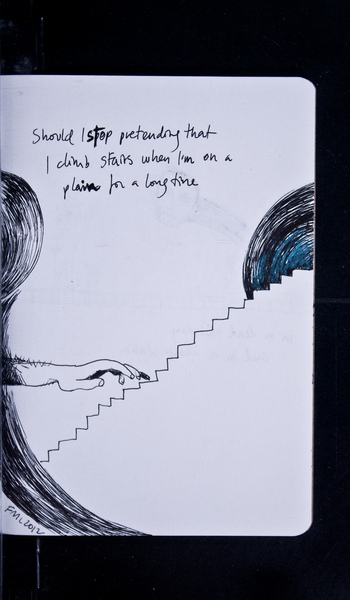 Should I stop pretending that
I climb stairs when I'm on a
plain for a long time
FML 2012